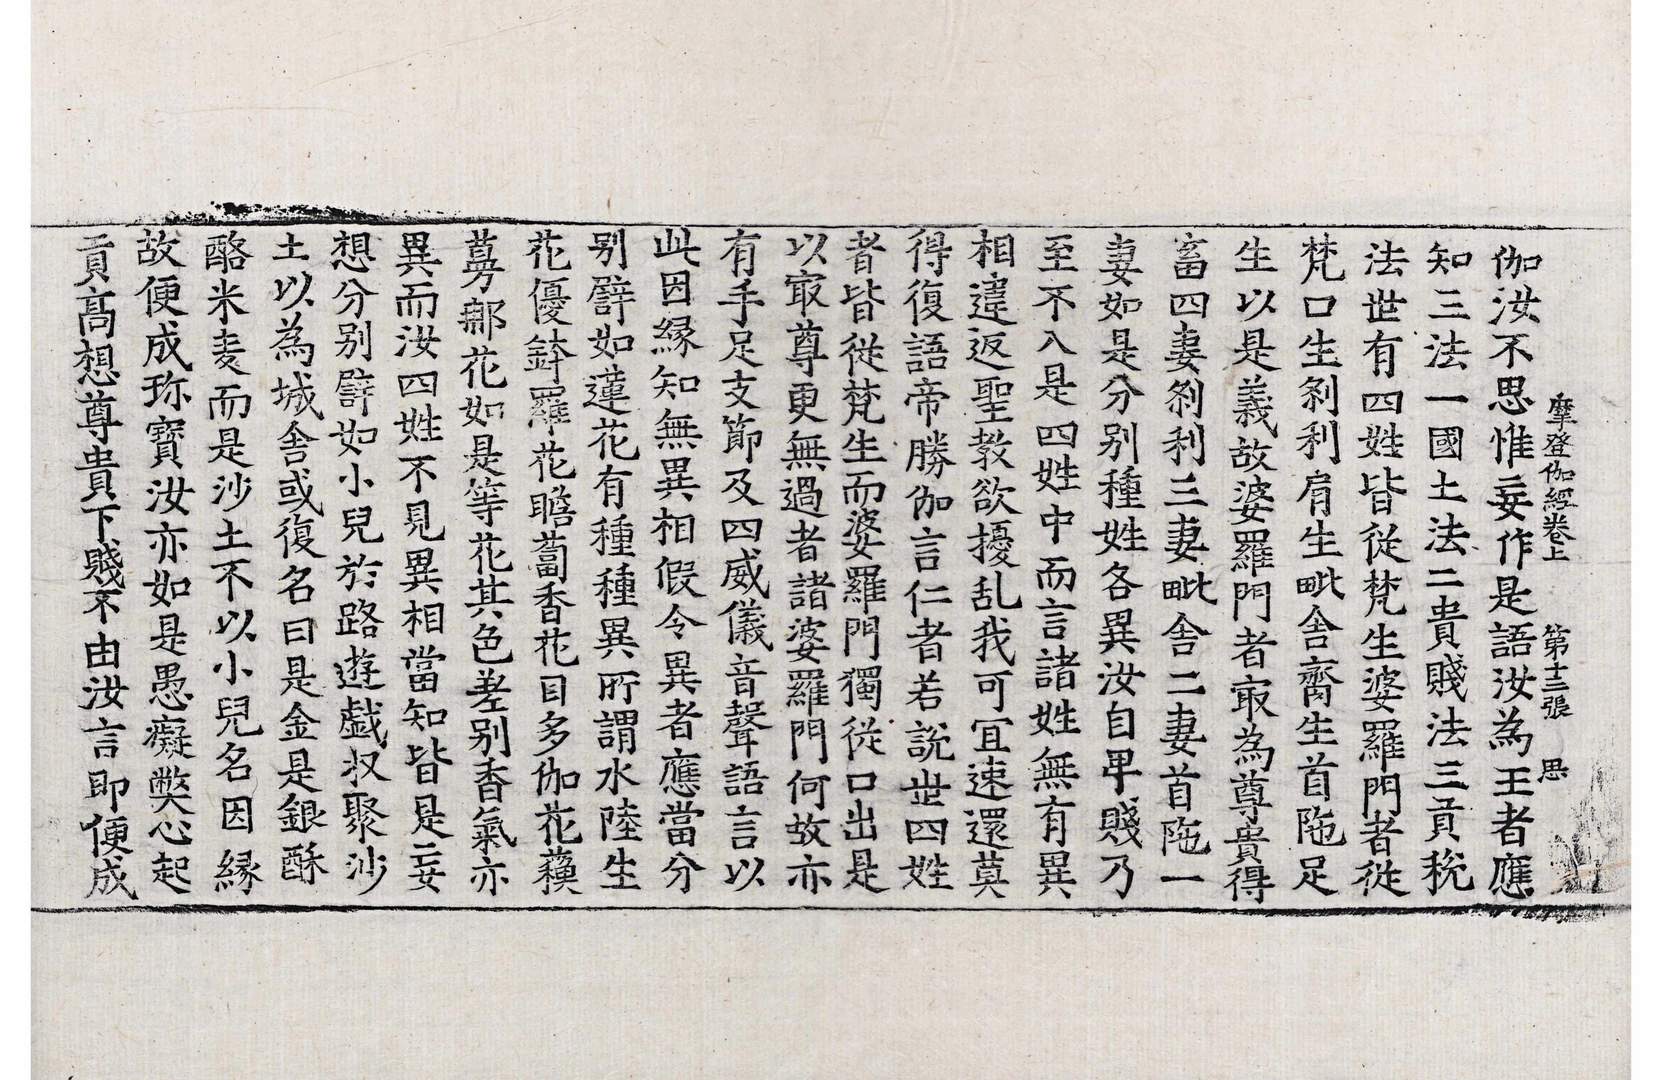 摩登伽經卷上　第十三張　思
伽汝不思惟妄作是語汝為王者應
知三法一國土法二貴賤法三貢稅
法世有四姓皆從梵生婆羅門者從
梵口生刹利肩生毗舍齊生首陁足
生以是義故婆羅門者㝡為尊貴得
畜四妻刹利三妻毗舍二妻首陁一
妻如是分別種姓各異汝自卑賤乃
至不入是四姓中而言諸姓無有異
相違返聖教欲擾乱我可冝速還莫
得復語帝勝伽言仁者若說世四姓
者皆從梵生而婆羅門獨從口出是
以㝡尊更無過者諸婆羅門何故亦
有手足支節及四威儀音聲語言以
此因緣知無異相假令異者應當分
別譬如蓮花有種種異所謂水陸生
花優鉢羅花瞻蔔香花目多伽花蘋
蔓那花如是等花其色差別香氣亦
異而汝四姓不見異相當知皆是妄
想分別譬如小兒於路遊戯收聚沙
土以為城舍或復名曰是金是銀酥
酪米麦而是沙土不以小兒名因緣
故便成珎寶汝亦如是愚癡弊心起
貢髙想尊貴下賤不由汝言即便成